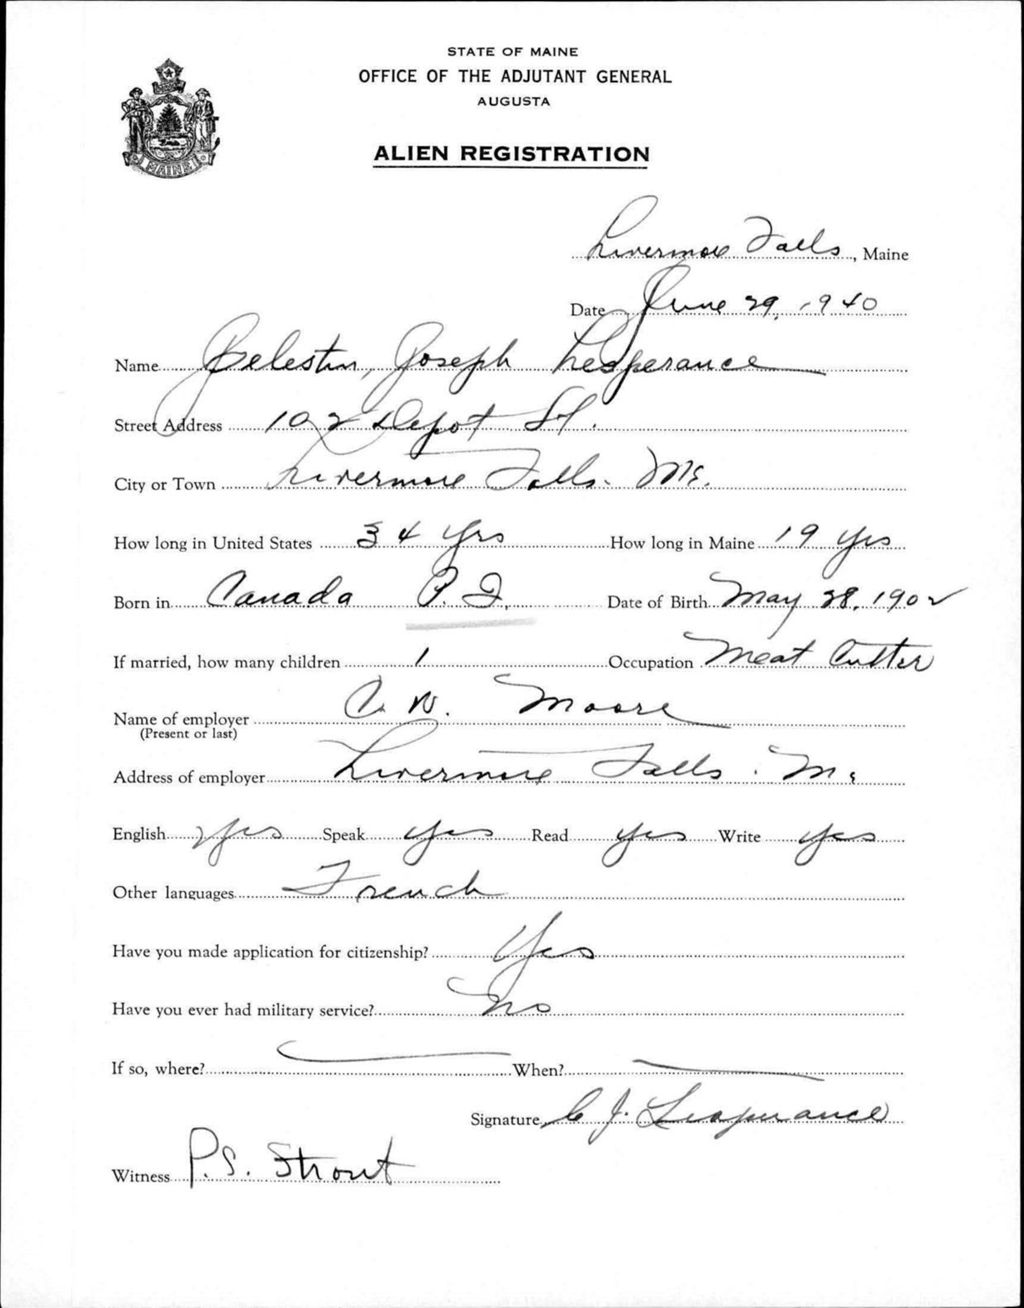 STATE OF MAINE
OFFICE OF THE ADJUTANT GENERAL
AUGUSTA
ALIEN REGISTRATION
MAINE
Livermore Falls, Maine
Date June 29, 1940
Name Celestin, Joseph Lesperance
Street Address 102 Depot St.
City or Town Livermore Falls. Me.
How long in United States 34 yrs How long in Maine 19 yrs
Born in Canada P. I. Date of Birth May 28, 1902
If married, how many children 1 Occupation Meat Cutter
Name of employer C. W. Moore
(Present or last)
Address of employer Livermore Falls. Me
English yes Speak yes Read yes Write yes
Other languages French
Have you made application for citizenship? Yes
Have you ever had military service? No
If so, where? When?
Signature C J. Lesperance
Witness P. S. Strout